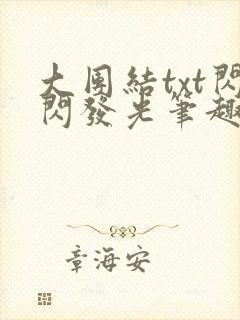 大团結txt閃
閃發光筆趣
章海安